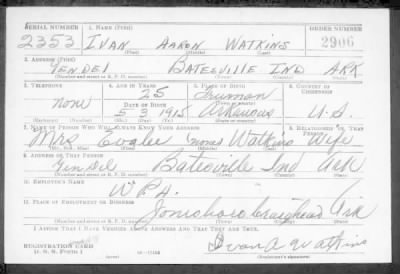 SERIAL NUMBER 1. NAME (Print) ORDER NUMBER
2353 IVAN AARON WATKINS 2906
(First) (Middle) (Last)
2. ADDRESS (Print)
GEN DEL BATESVILLE IND ARK
(Number and street or R. F. D. number) (Town) (County) (State)
3. TELEPHONE 4. AGE IN YEARS 5. PLACE OF BIRTH 6. COUNTRY OF CITIZENSHIP
25 Truman
none DATE OF BIRTH (Town or county)
5 3 1915 Arkansas U.S.
(Exchange) (Number) (Mo.) (Day) (Yr.) (State or country)
7. NAME OF PERSON WHO WILL ALWAYS KNOW YOUR ADDRESS 8. RELATIONSHIP OF THAT PERSON
Mrs Watkins Wife
(Mr., Mrs., Miss) (First) (Middle) (Last)
9. ADDRESS OF THAT PERSON
Gen Del Batesville Ind Ark
(Number and street or R. F. D. number) (Town) (County) (State)
10. EMPLOYER'S NAME
W.P.A.
11. PLACE OF EMPLOYMENT OR BUSINESS
Jonesboro Craighead Ark
(Number and street or R. F. D. number) (Town) (County) (State)
I AFFIRM THAT I HAVE VERIFIED ABOVE ANSWERS AND THAT THEY ARE TRUE.
REGISTRATION CARD
D. S. S. Form 1 Ivan A Watkins
(Registrant's signature)